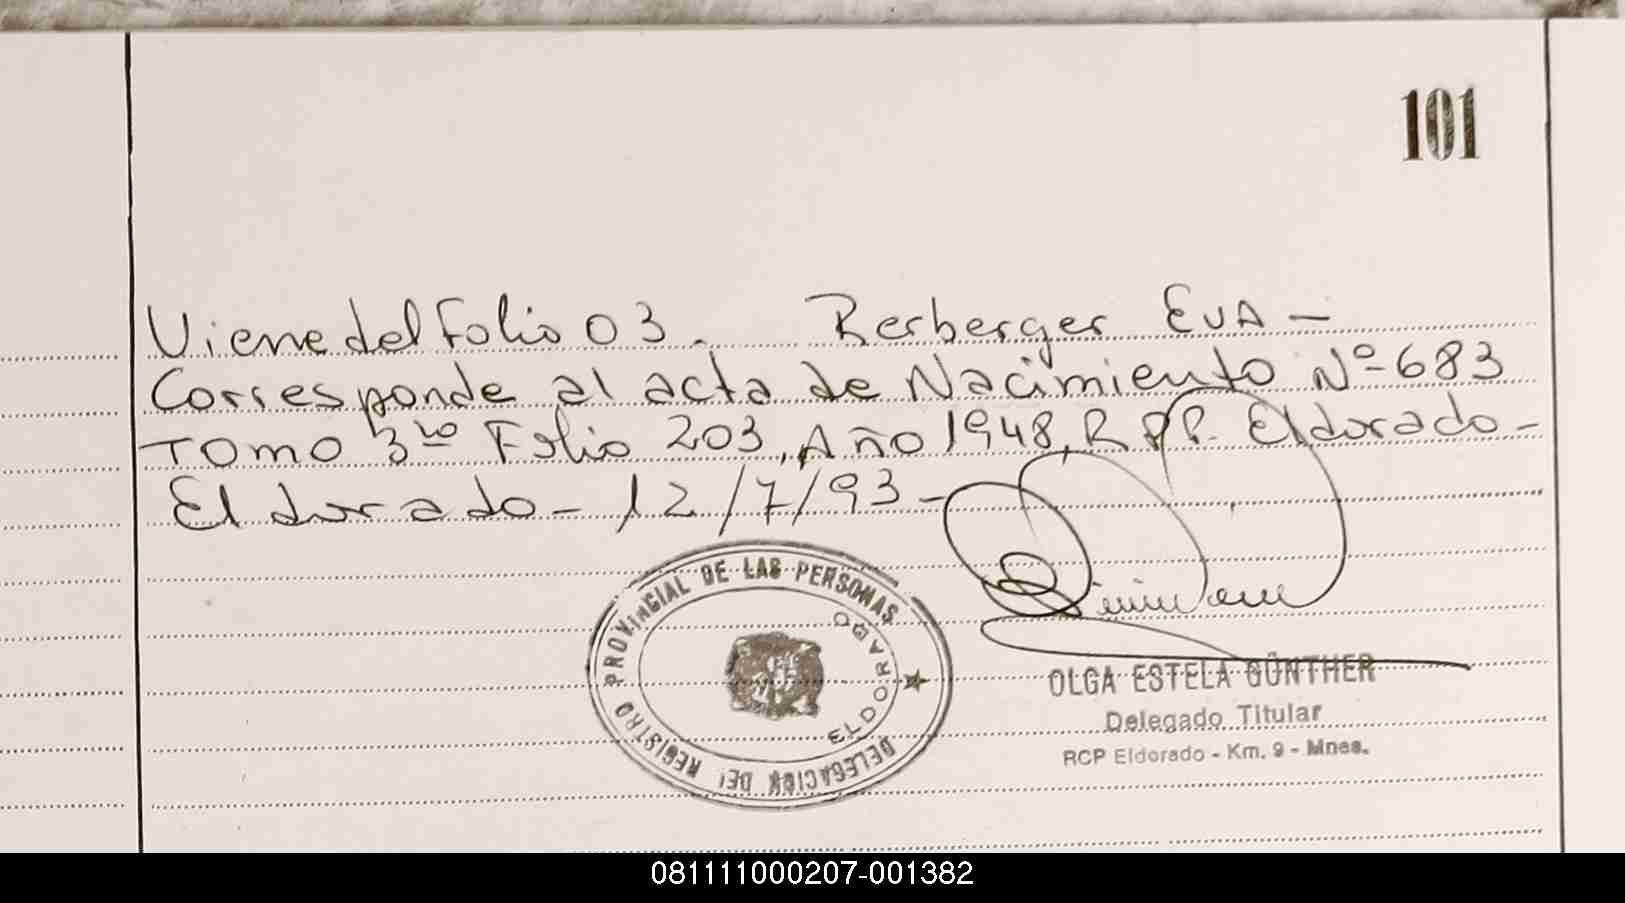 101
Viene del Folio 03. Rerberger EVA -
Corresponde al acta de Nacimiento Nº 683
TOMO 3ro Folio 203, Año 1948, R.P.P. Eldorado -
Eldorado - 12/7/93 -
DELEGACION DEL REGISTRO PROVINCIAL DE LAS PERSONAS
ELDORADO
OLGA ESTELA GÜNTHER
Delegado Titular
RCP Eldorado - Km. 9 - Mnes.
081111000207-001382